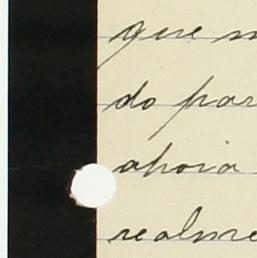 que m
do par
ahora
realme